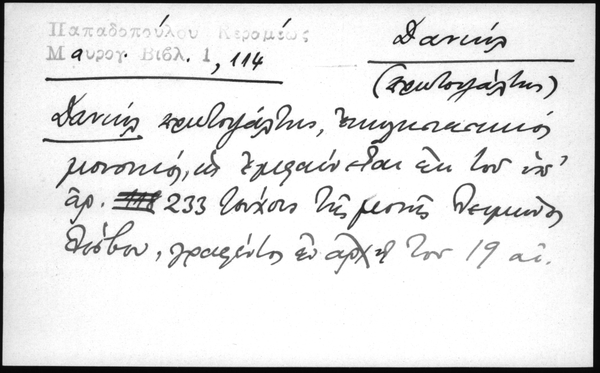 Παπαδοπούλου Κεραμέως
Μαυρογ. Βιβλ. 1, 114
Δανιήλ
(πρωτοψάλτης)
Δανιήλ πρωτοψάλτης, ἐκκλησιαστικός
μουσικός, ὡς ἐμφαίνεται ἐκ τοῦ ὑπ'
ἀρ. 233 τεύχους τῆς μονῆς Λειμῶνος
Λέσβου, γραφέντος ἐν ἀρχῇ τοῦ 19 αἰ.